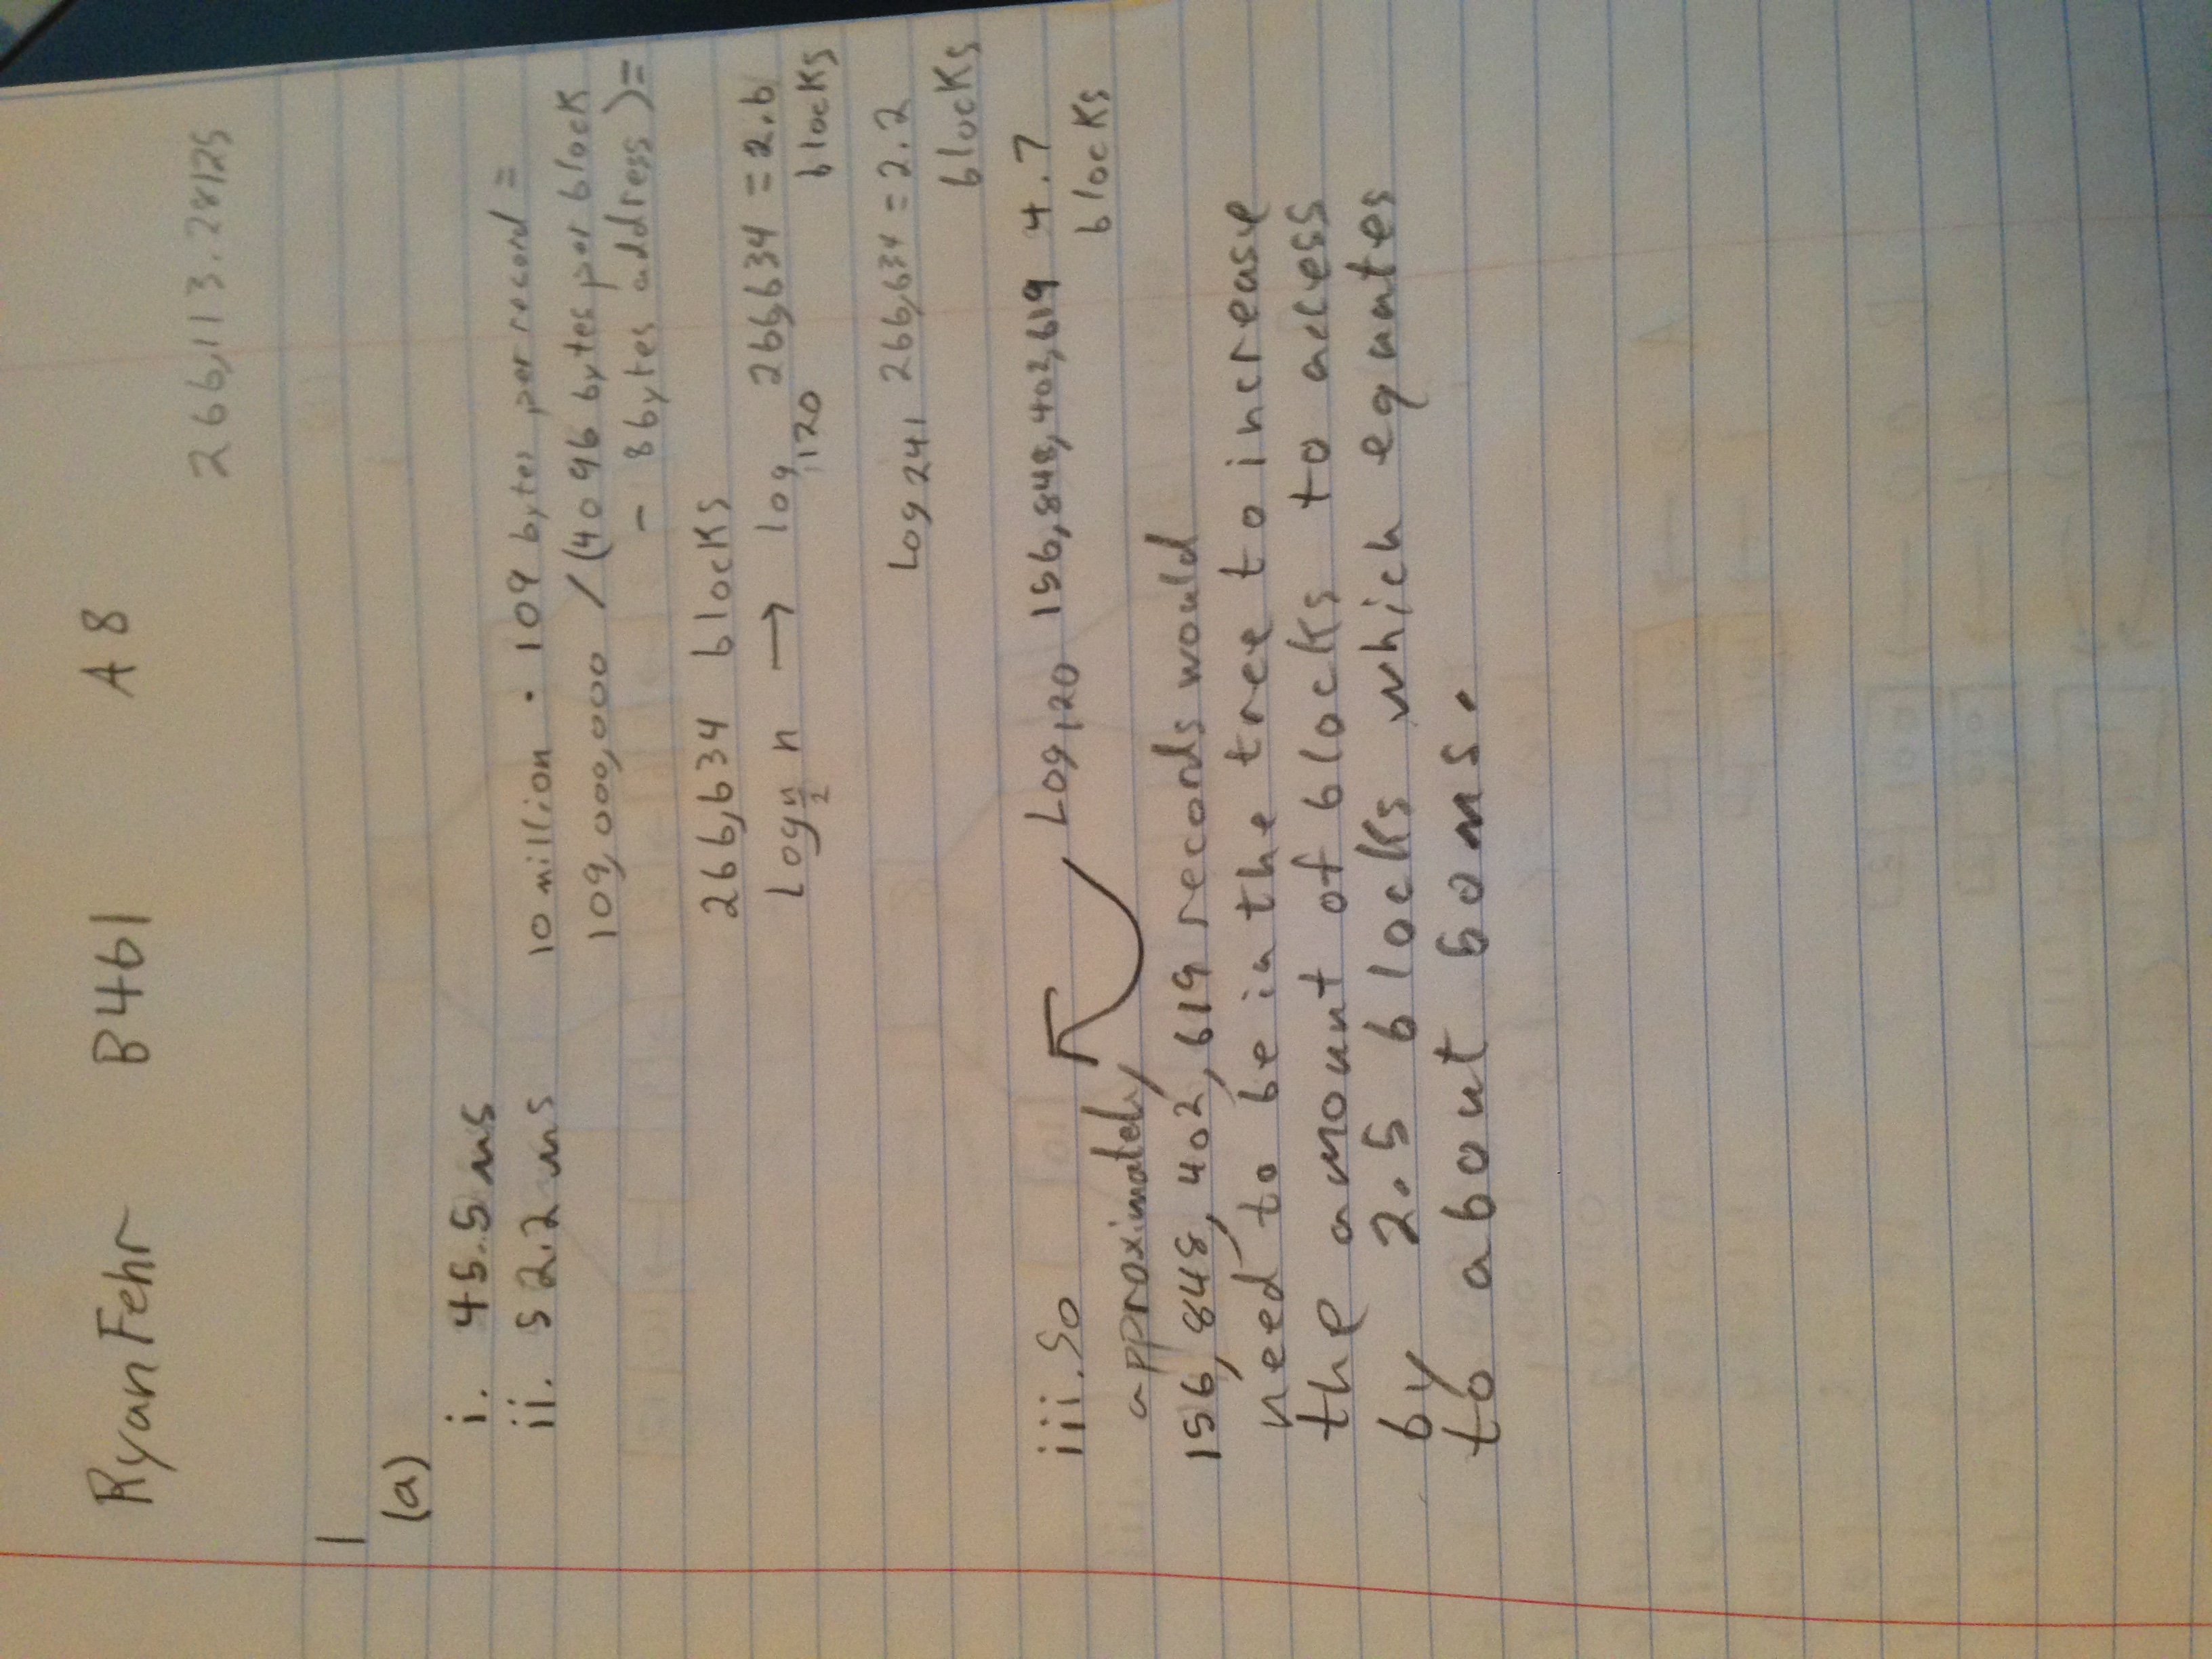 Ryan Fehr B461 A8
266,113.28125
1
(a)
i. 45.5 ms
ii. 52.2 ms
10 million · 109 bytes per record =
109,000,000 / (4096 bytes per block
- 8 bytes address) =
266,634 blocks
Log n/2 n → log 120 266,634 = 2.6
blocks
Log 241 266,634 = 2.2
blocks
iii. So
Log 120 156,848,402,619 4.7
blocks
approximately
156,848,402,619 records would
need to be in the tree to increase
the amount of blocks to access
by 2.5 blocks which equates
to about